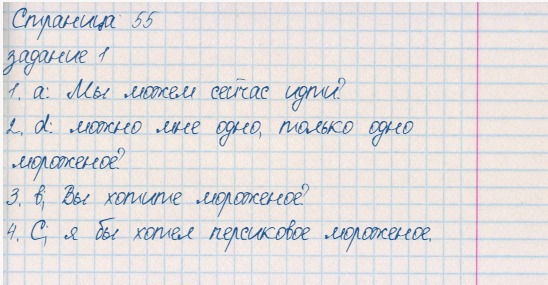 Страница 55
задание 1
1. a: Мы можем сейчас идти?
2. d: можно мне одно, только одно
мороженое?
3. b; Вы хотите мороженое?
4. C; я бы хотел персиковое мороженое.